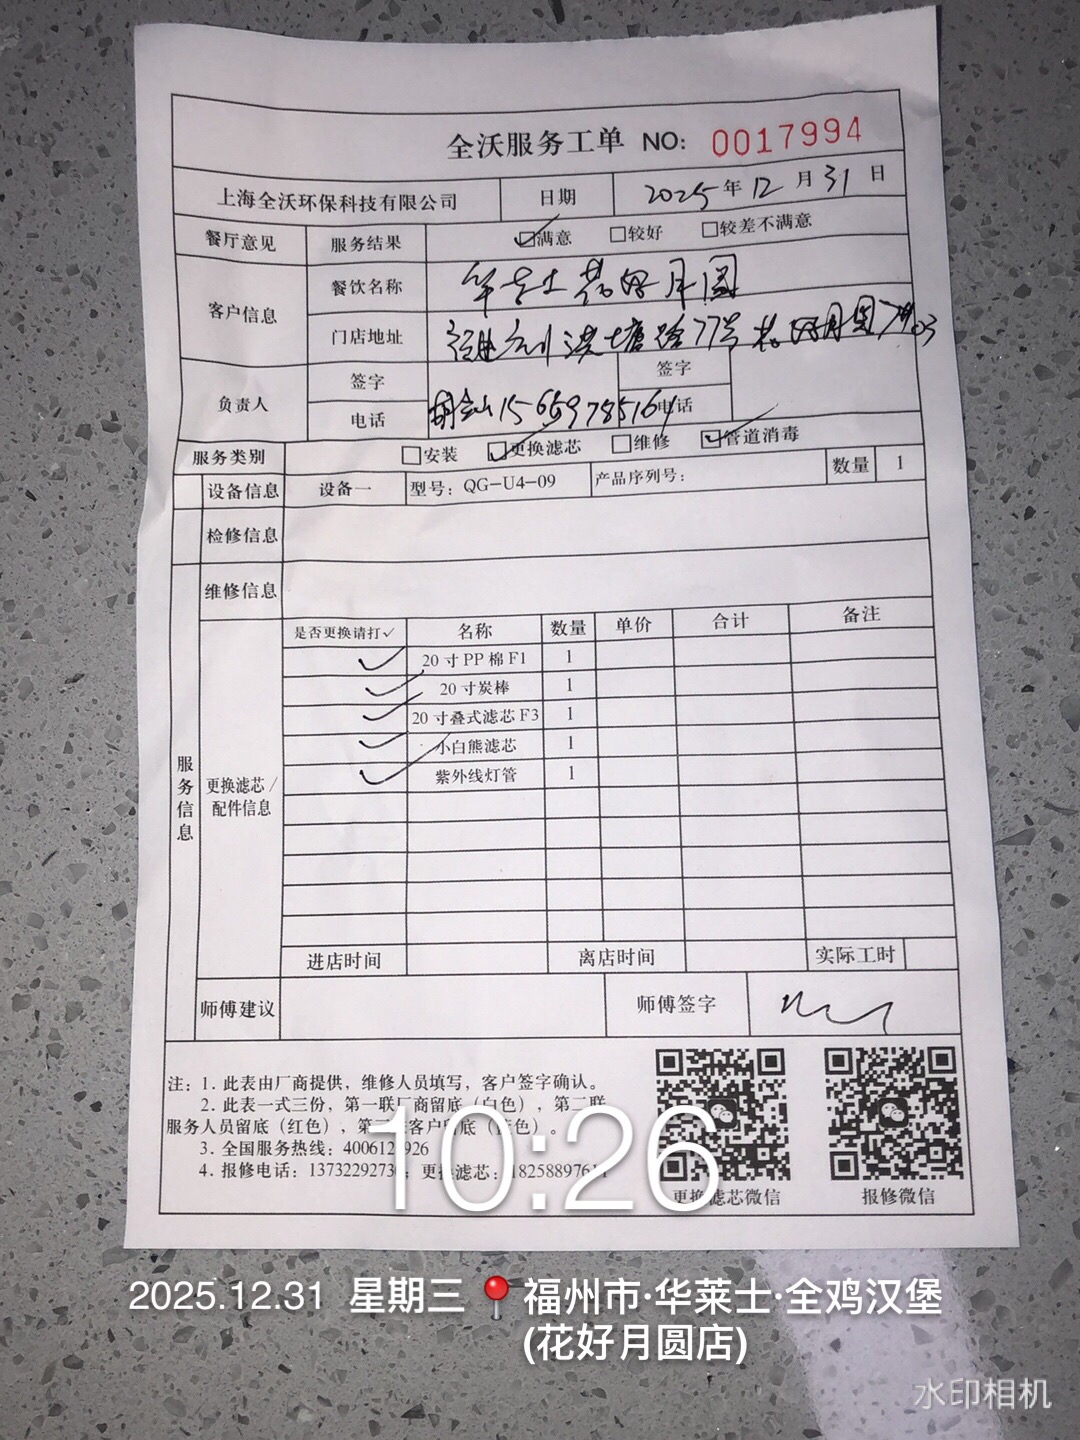 全沃服务工单 NO: 0017994
上海全沃环保科技有限公司 日期 2025年12月31日
餐厅意见 服务结果 ☑满意 □较好 □较差不满意
客户信息 餐饮名称 华莱士花好月圆
门店地址 福建福州洪塘路77号花好月圆
负责人 签字 签字
电话 15659785164 电话
服务类别 □安装 ☑更换滤芯 □维修 ☑管道消毒
设备信息 设备一 型号：QG-U4-09 产品序列号： 数量 1
检修信息
维修信息
服务信息
更换滤芯/配件信息
是否更换请打✓ 名称 数量 单价 合计 备注
✓ 20寸PP棉F1 1
✓ 20寸炭棒 1
✓ 20寸叠式滤芯F3 1
✓ 小白熊滤芯 1
✓ 紫外线灯管 1
进店时间 离店时间 实际工时
师傅建议 师傅签字
注：1. 此表由厂商提供，维修人员填写，客户签字确认。
2. 此表一式三份，第一联厂商留底（白色），第二联
服务人员留底（红色），第三联客户留底（蓝色）。
3. 全国服务热线：
4. 报修电话： 更换滤芯：
更换滤芯微信 报修微信
10:26
2025.12.31 星期三 福州市·华莱士·全鸡汉堡
(花好月圆店)
水印相机